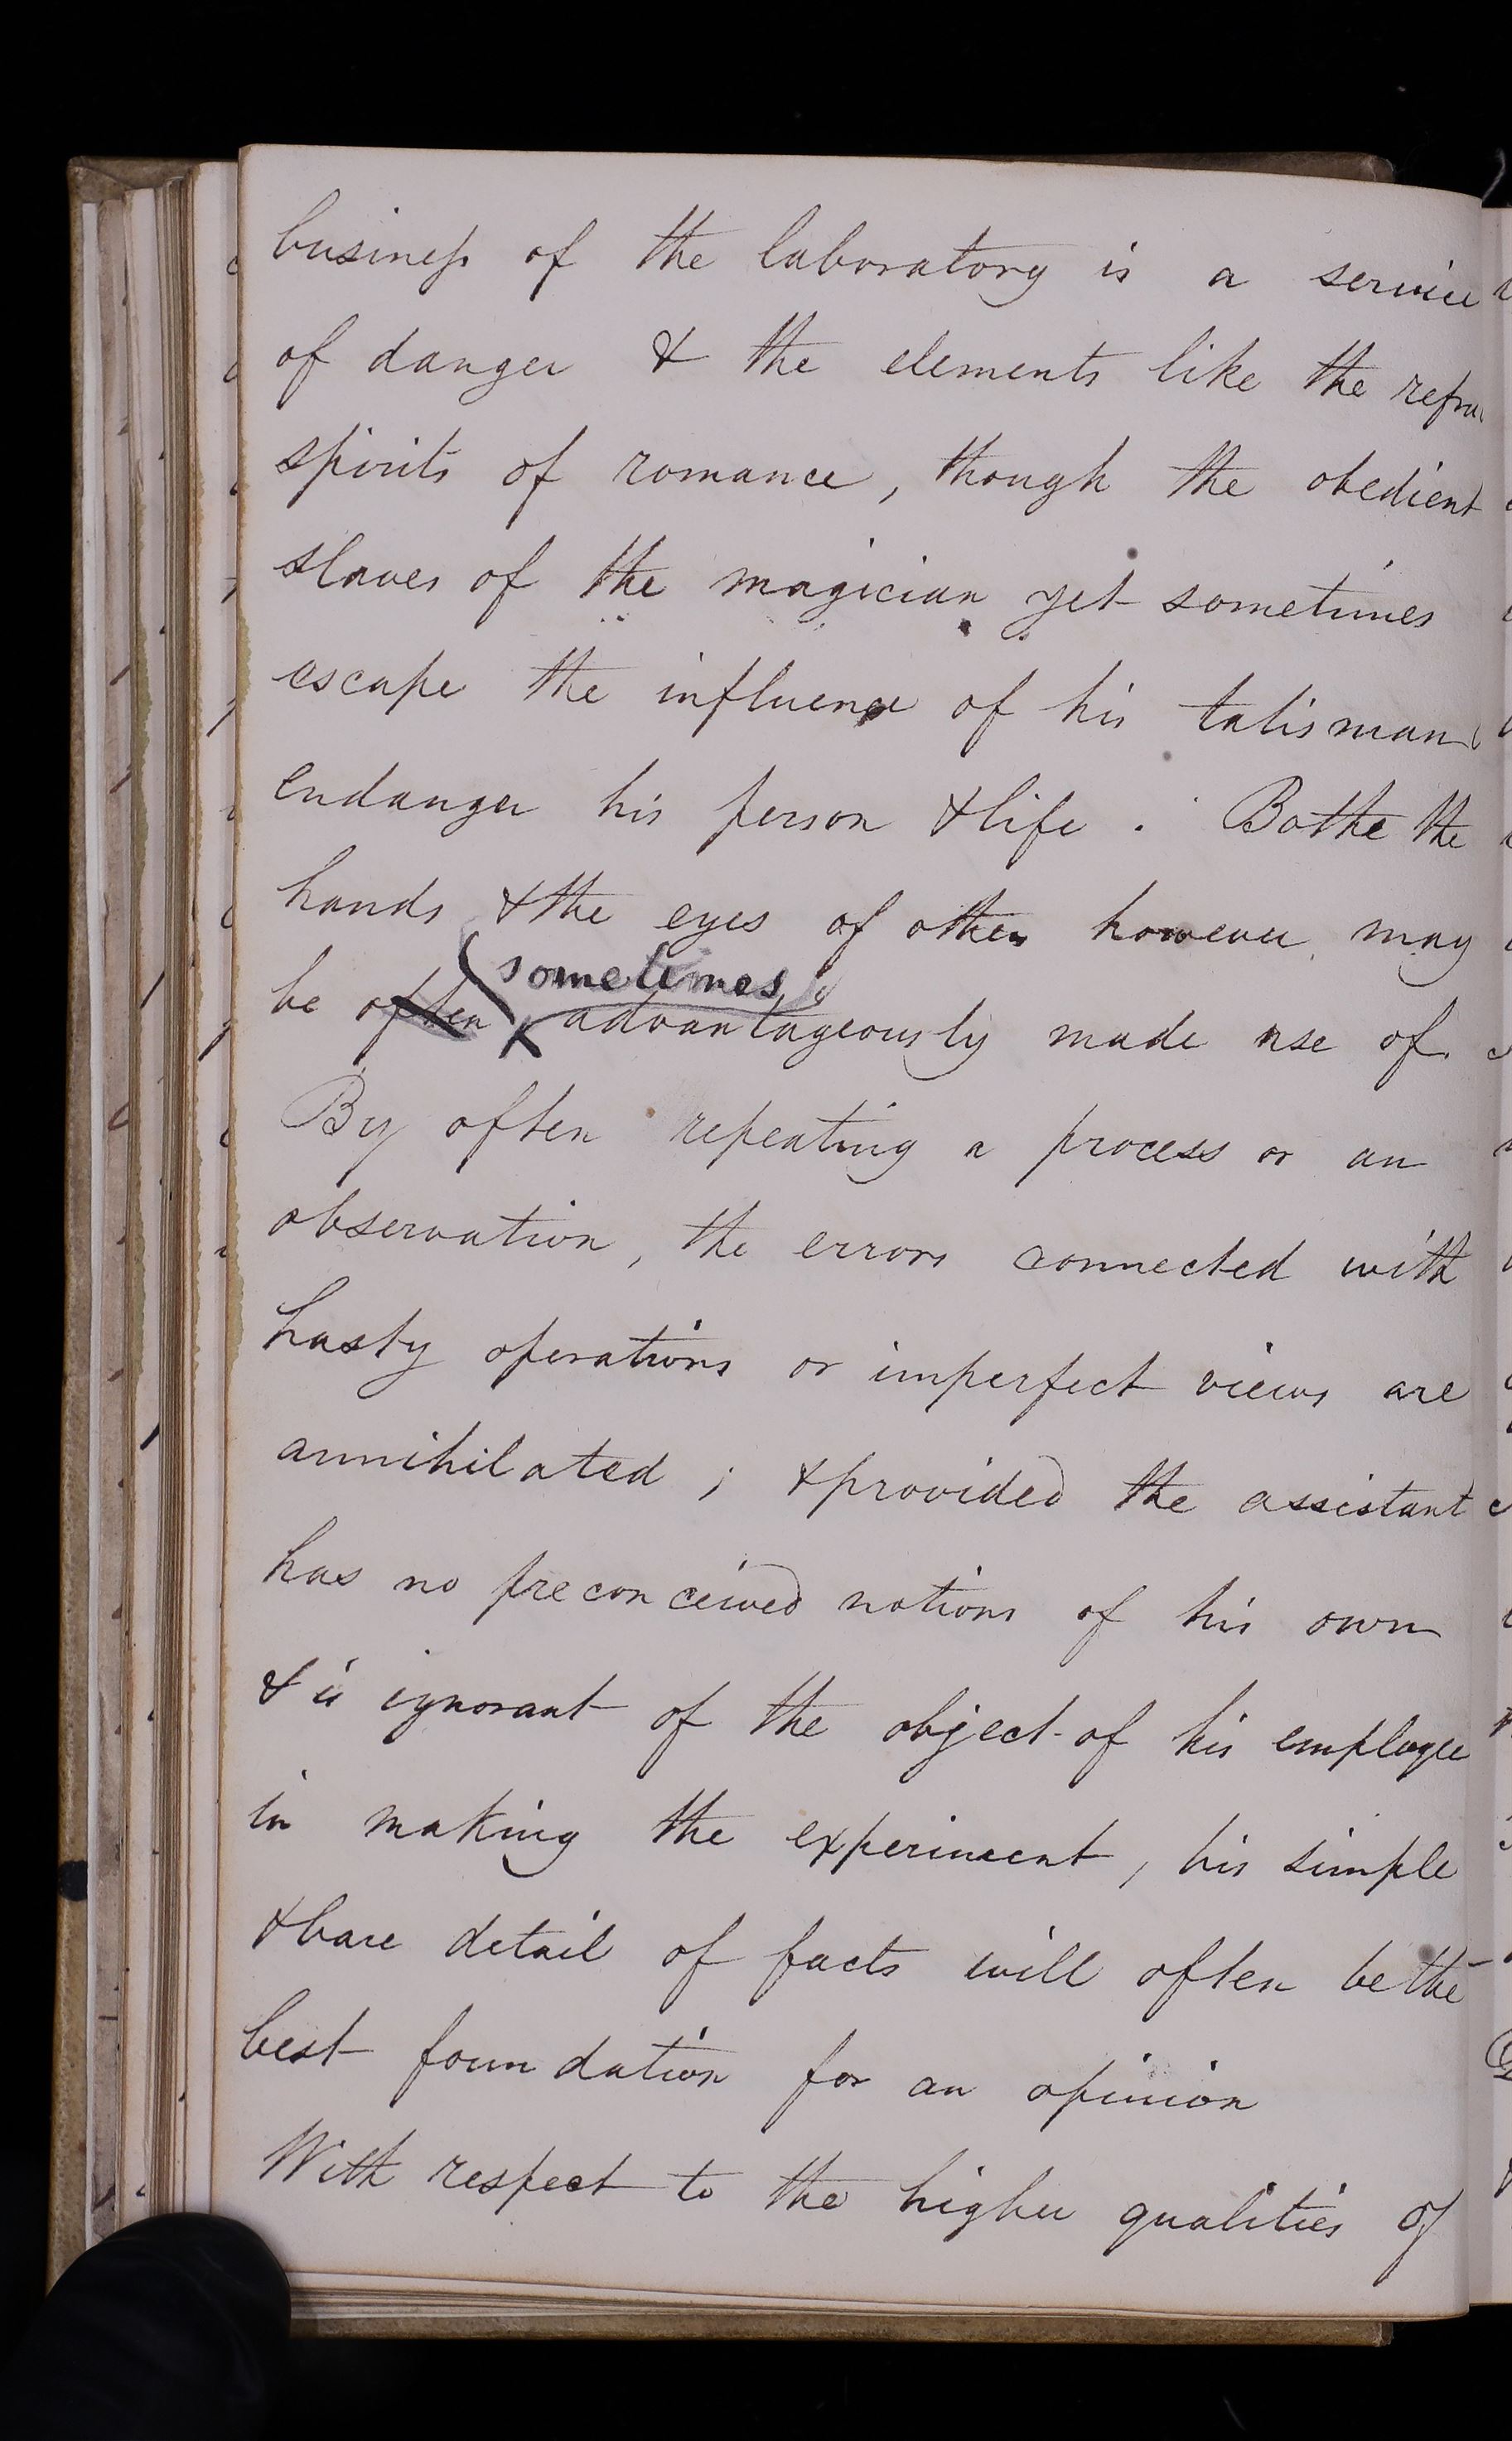 business of the laboratory is a service
of danger & the elements like the
spirits of romance, though the obedient
slaves of the magician yet sometimes
escape the influence of his talisman
endanger his person & life . Bothe the
hands & the eyes of others however may
sometimes
be often advantageously made use of.
By often repeating a process or an
observation, the errors connected with
hasty operations or imperfect views are
annihilated ; & provided the assistant
has no preconceived notions of his own
& is ignorant of the object of his employer
in making the experiment, his simple
& bare detail of facts will often be the
best foundation for an opinion
With respect to the higher qualities of